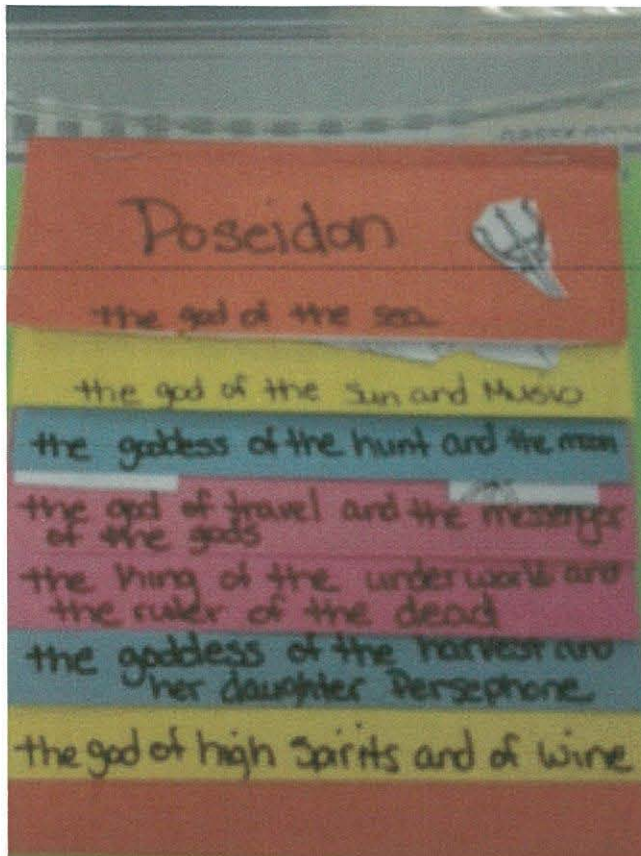 Poseidon
the god of the sea
the god of the Sun and Music
the goddess of the hunt and the moon
the god of travel and the messenger
of the gods
the king of the underworld and
the ruler of the dead
the goddess of the harvest and
her daughter Persephone
the god of high Spirits and of wine